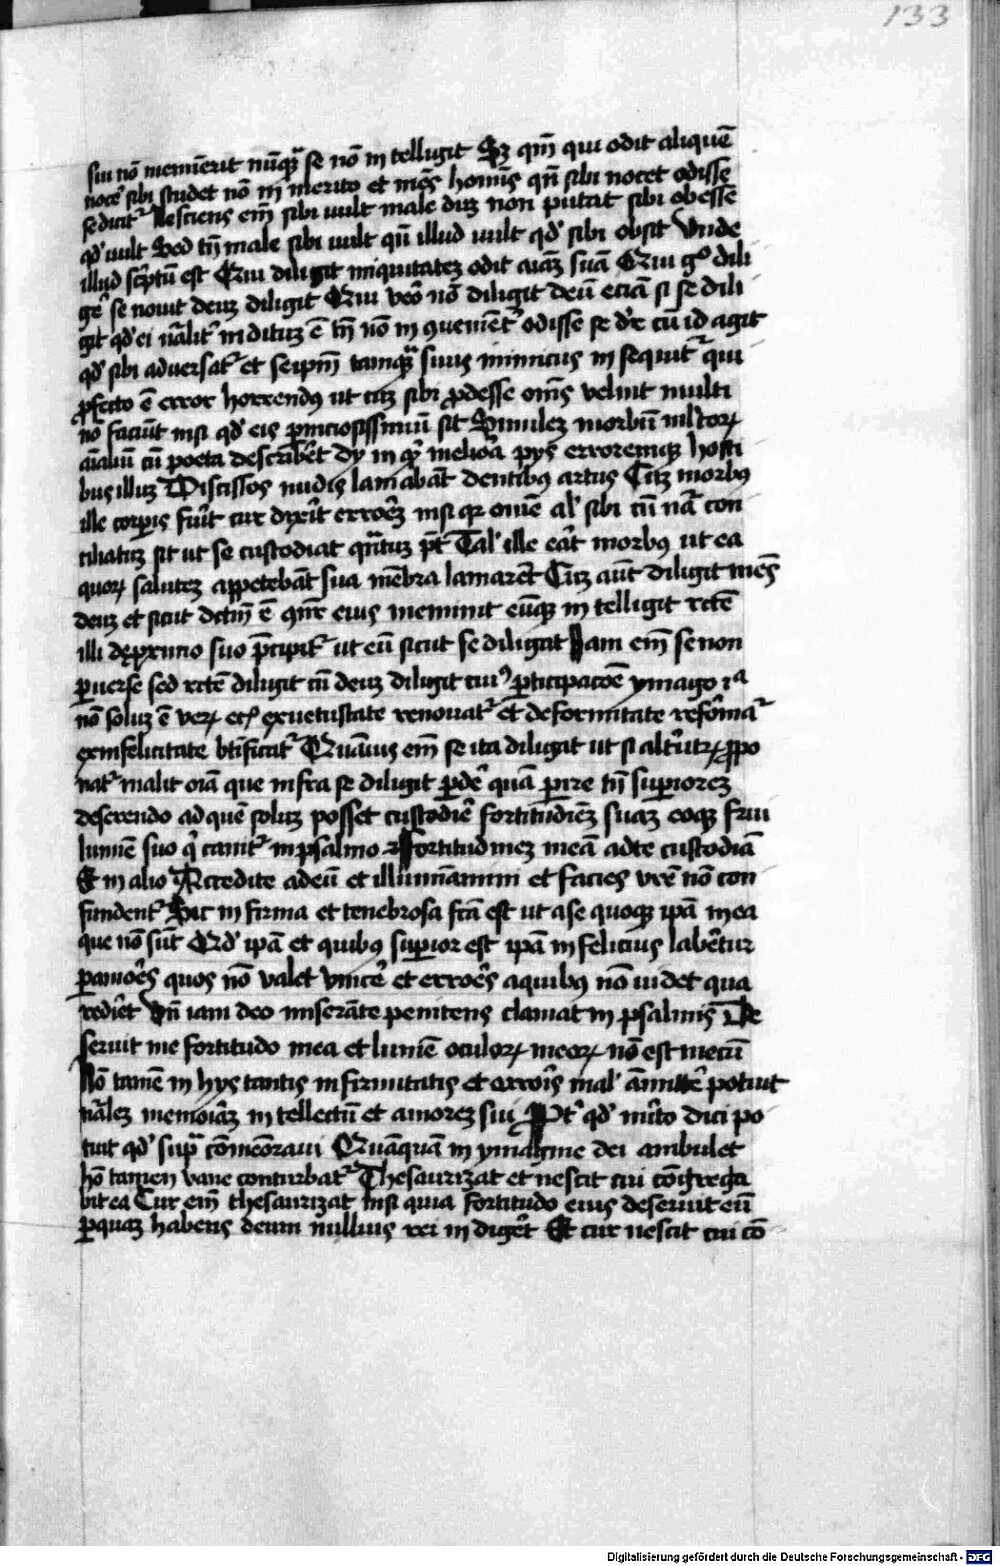 133
sui nō meminerit nūq̄ȝ se nō intelligit Sȝ qm̄ qui odit aliquē
nocē sibi studet nō inmerito et mēs homīs qn̄ sibi nocet odisse
se dicit᷑ Nesciens em̄ sibi uult male duȝ non putat sibi obesse
qd' uult Sed tn̄ male sibi uult qn̄ illud uult qd' sibi obsit Vnde
illud scriptū est Qui diligit iniquitateȝ odit aīaȝ suā Qui gͦ dili
gē se nouit deuȝ diligit Qui vēo nō diligit deū eciā si se dili
git qd' ei nālit᷑ inditūȝ ē tn̄ nō inꝯuenient᷑ odisse se dr̄ cū id agit
qd' sibi aduersat᷑ et seipm̄ tamq̄ȝ suus inimicus insequit᷑ qui
ꝓfecto ē error horrendꝰ ut cūȝ sibi ꝓdesse om̄s velint multi
nō faciūt nisi qd' eis ꝑniciosissimū sit Simileȝ morbū
aīaliū cū poeta describēt dy inq̄ meliora pys erroremqȝ hosti
bus illuȝ Discissos nudis laniabāt dentibꝰ artus Cūȝ morbꝰ
ille corpīs fuīt cur dyxīt erroēȝ nisi qr omē al' sibi cū nā con
ciliatūȝ sit ut se custodiat qn̄tuȝ pt̄ Tal' ille eāt morbꝰ ut ea
quoꝝ saluteȝ appetebāt sua mēbra laniarēt Cūȝ aūt diligit mēs
deuȝ et sicut dctm̄ ē ꝯn̄r eius meminit eūqȝ intelligit rcte
illi de ꝓximo suo p̄cipit᷑ ut eū sicut se diligat Jam em̄ se non
ꝑuerse sed rcte diligit cū deuȝ diligit cuiꝰ ꝑticipacōe ymago ia
nō soluȝ ē verū eciā exuetustate renouat᷑ et deformitate reformat᷑
exinfelicitate btificat᷑ Quāuis em̄ se ita diligat ut si alt'utrū ꝓpo
nat᷑ malit oīa que infra se diligit ꝑdē quā ꝑire tn̄ supioreȝ
deserendo ad quē soluȝ posset custodiē fortitudinēȝ suaȝ eoqȝ frui
lumīe suo q̄ canit᷑ in psalmo Fortitudineȝ meā ad te custodiā
Et in alio Accedite ad eū et illuminamini et facies vr̄e nō con
fundent᷑ Sic infirma et tenebrosa fcā est ut a se quoqȝ ipā in ea
que nō sūt Qd' ipā et quibꝰ supior est ipā infelicius labēt᷑ur
ꝑ amoēs quos nō valet vincē et erroēs a quibꝰ nō uidet qua
rediēt Vn̄ iam deo miserāte penitens clamat in psalmis De
seruit me fortitudo mea et lumē oculoꝝ meoꝝ nō est mecū
Nō tamē in hys tantis infirmitatis et erroīs mal' āmittē potuit
nāleȝ memoīaȝ intellectū et amoreȝ sui Pt᷑ qd' mīto dici po
tuit qd' sup̄ cōmeōraui Quāquā in ymagine dei ambulet
hō tamen vane conturbat᷑ Thesaurizat et nescit cui cōgrega
bit ea Cur em̄ thesaurizat nisi quia fortitudo eius deseruit eū
ꝑ quaȝ habens deum nullius rei indigēt Et cur nescit cui cō
Digitalisierung gefördert durch die Deutsche Forschungsgemeinschaft - DFG